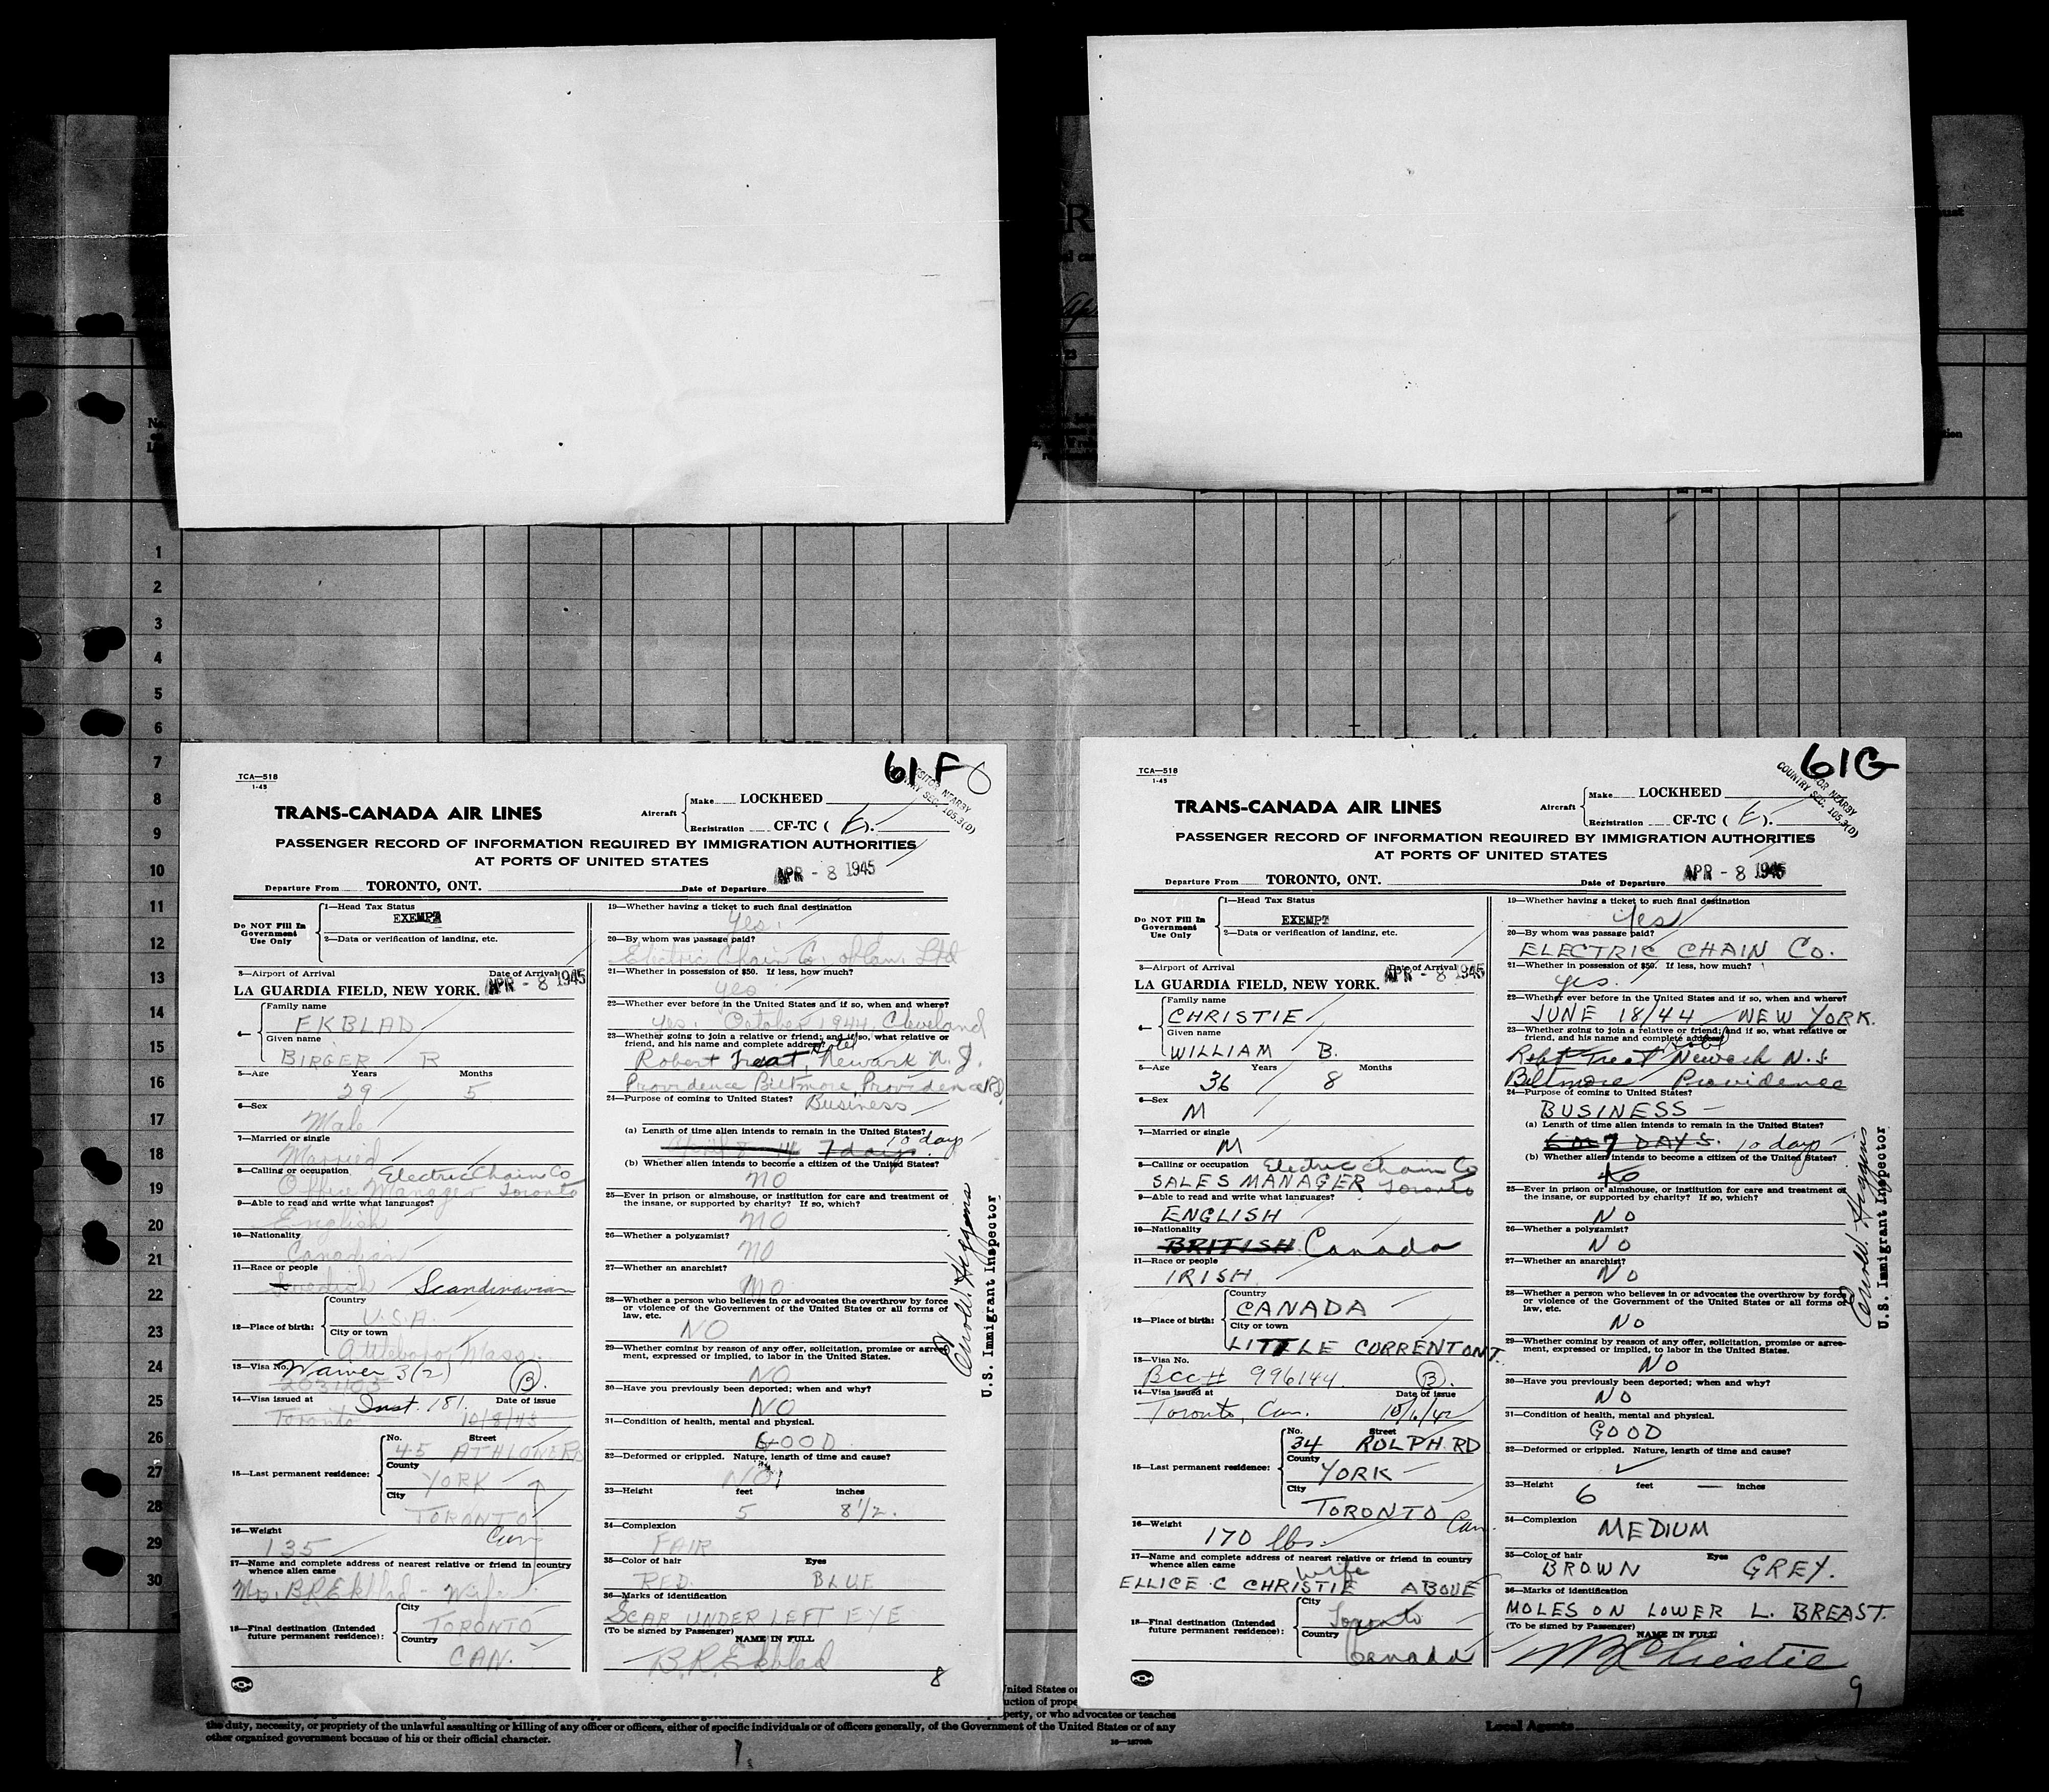 1
2
3
4
5
6
7
8
9
10
11
12
13
14
15
16
17
18
19
20
21
22
23
24
25
26
27
28
29
30
61F
TCA—518
1-45
TRANS-CANADA AIR LINES
Aircraft
Make LOCKHEED
Registration CF-TC ( E ).
NEARBY
SEC. 105.3(D)
PASSENGER RECORD OF INFORMATION REQUIRED BY IMMIGRATION AUTHORITIES
AT PORTS OF UNITED STATES
Departure From TORONTO, ONT. Date of Departure APR - 8 1945
Do NOT Fill In
Government
Use Only
1—Head Tax Status
EXEMPT
2—Data or verification of landing, etc.
3—Airport of Arrival Date of Arrival
LA GUARDIA FIELD, NEW YORK. APR - 8 1945
4—
Family name
EKBLAD
Given name
BIRGER R
5—Age Years Months
29 5
6—Sex
Male
7—Married or single
Married
8—Calling or occupation Electric Chain Co
Office Manager Toronto
9—Able to read and write what languages?
English
10—Nationality
Canadian
11—Race or people
Swedish Scandinavian
12—Place of birth:
Country
U.S.A.
City or town
Attleboro, Mass.
13—Visa No. Waiver 3(2) (B).
14—Visa issued at Inst. 181. Date of issue
Toronto 10/8/43
15—Last permanent residence:
No. Street
45 ATHLONE RD
County
YORK
City
TORONTO
Can
16—Weight
135
17—Name and complete address of nearest relative or friend in country
whence alien came
Mrs. B.R. Ekblad - Wife
18—Final destination (Intended
future permanent residence):
City
TORONTO
Country
CAN.
19—Whether having a ticket to such final destination
Yes.
20—By whom was passage paid?
Electric Chain Co. of Can. Ltd
21—Whether in possession of $50. If less, how much?
yes
22—Whether ever before in the United States and if so, when and where?
yes. October 1944 Cleveland
23—Whether going to join a relative or friend; and if so, what relative or
friend, and his name and complete address? Hotel
Robert Treat, Newark N.J.
Providence Biltmore Providence R.I.
24—Purpose of coming to United States? Business
(a) Length of time alien intends to remain in the United States?
7 days. 10 days
(b) Whether alien intends to become a citizen of the United States?
NO
25—Ever in prison or almshouse, or institution for care and treatment of
the insane, or supported by charity? If so, which?
NO
26—Whether a polygamist?
NO
27—Whether an anarchist?
NO
28—Whether a person who believes in or advocates the overthrow by force
or violence of the Government of the United States or all forms of
law, etc.
NO
29—Whether coming by reason of any offer, solicitation, promise or agree-
ment, expressed or implied, to labor in the United States.
NO
30—Have you previously been deported; when and why?
NO
31—Condition of health, mental and physical.
GOOD
32—Deformed or crippled. Nature, length of time and cause?
NO
33—Height feet inches
5 8 1/2.
34—Complexion
FAIR
35—Color of hair Eyes
RED BLUE
36—Marks of identification
SCAR UNDER LEFT EYE
(To be signed by Passenger)
NAME IN FULL
B.R. Ekblad
8
U.S. Immigrant Inspector
61G
TCA—518
1-45
TRANS-CANADA AIR LINES
Aircraft
Make LOCKHEED
Registration CF-TC ( E ).
NEARBY
COUNTRY SEC. 105.3(D)
PASSENGER RECORD OF INFORMATION REQUIRED BY IMMIGRATION AUTHORITIES
AT PORTS OF UNITED STATES
Departure From TORONTO, ONT. Date of Departure APR - 8 1945
Do NOT Fill In
Government
Use Only
1—Head Tax Status
EXEMPT
2—Data or verification of landing, etc.
3—Airport of Arrival Date of Arrival
LA GUARDIA FIELD, NEW YORK. APR - 8 1945
4—
Family name
CHRISTIE
Given name
WILLIAM B.
5—Age Years Months
36 8
6—Sex
M
7—Married or single
M
8—Calling or occupation Electric Chain Co
SALES MANAGER Toronto
9—Able to read and write what languages?
ENGLISH
10—Nationality
BRITISH Canada
11—Race or people
IRISH
12—Place of birth:
Country
CANADA
City or town
LITTLE CURRENT ONT.
13—Visa No.
BCC# 996144 (B).
14—Visa issued at Date of issue
Toronto, Can. 10/6/42
15—Last permanent residence:
No. Street
34 ROLPH RD
County
YORK
City
TORONTO Can.
16—Weight
170 lbs.
17—Name and complete address of nearest relative or friend in country
whence alien came wife
ELLICE C CHRISTIE ABOVE
18—Final destination (Intended
future permanent residence):
City
Toronto
Country
Canada
19—Whether having a ticket to such final destination
Yes
20—By whom was passage paid?
ELECTRIC CHAIN Co.
21—Whether in possession of $50. If less, how much?
Yes.
22—Whether ever before in the United States and if so, when and where?
JUNE 18/44 NEW YORK.
23—Whether going to join a relative or friend; and if so, what relative or
friend, and his name and complete address? Hotel
Robt Treat Newark N.J.
Biltmore Providence
24—Purpose of coming to United States?
BUSINESS
(a) Length of time alien intends to remain in the United States?
6 or 7 DAYS. 10 days
(b) Whether alien intends to become a citizen of the United States?
No
25—Ever in prison or almshouse, or institution for care and treatment of
the insane, or supported by charity? If so, which?
NO
26—Whether a polygamist?
NO
27—Whether an anarchist?
NO
28—Whether a person who believes in or advocates the overthrow by force
or violence of the Government of the United States or all forms of
law, etc.
NO
29—Whether coming by reason of any offer, solicitation, promise or agree-
ment, expressed or implied, to labor in the United States.
NO
30—Have you previously been deported; when and why?
NO
31—Condition of health, mental and physical.
GOOD
32—Deformed or crippled. Nature, length of time and cause?
33—Height feet inches
6 —
34—Complexion
MEDIUM
35—Color of hair Eyes
BROWN GREY.
36—Marks of identification
MOLES ON LOWER L. BREAST.
(To be signed by Passenger)
NAME IN FULL
WB Christie
9
U.S. Immigrant Inspector
the duty, necessity, or propriety of the unlawful assaulting or killing of any officer or officers, either of specific individuals or of officers generally, of the Government of the United States or of any
other organized government because of his or their official character.
Local Agents